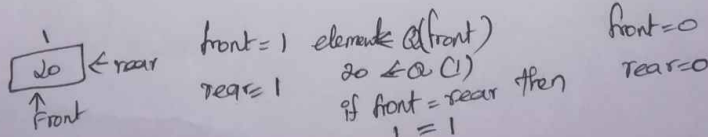 1
20 ← rear
↑
Front
front = 1
rear = 1
element ← Q(front)
20 ← Q(1)
if front = rear then
1 = 1
front = 0
rear = 0